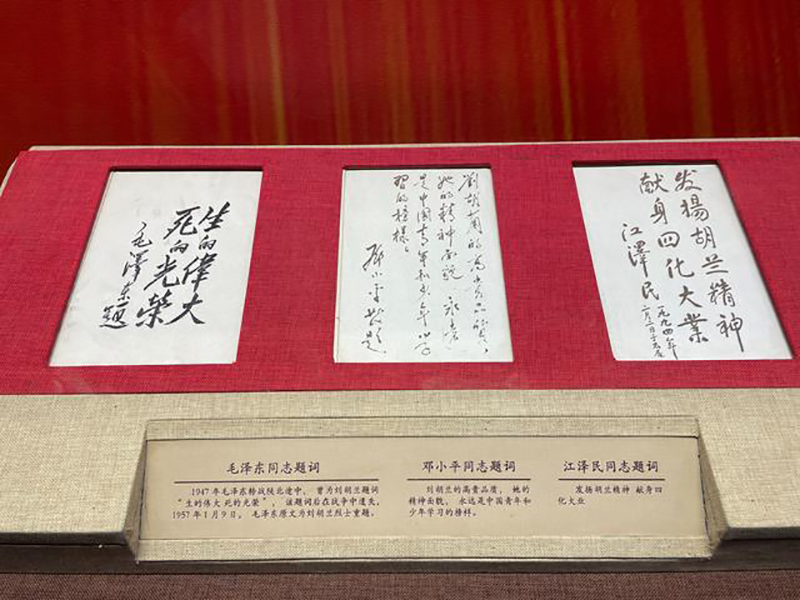 生的偉大
死的光榮
毛澤东題
劉胡蘭的高貴品質，
她的精神面貌，永遠
是中国青年和少年学
習的榜樣。
鄧小平敬題
发揚胡兰精神
献身四化大業
江澤民
一九九四年
毛泽东同志题词
1947年毛泽东转战陕北途中，曾为刘胡兰题词
“生的伟大 死的光荣”，该题词后在战争中遗失。
1957年1月9日，毛泽东原文为刘胡兰烈士重题。
邓小平同志题词
刘胡兰的高贵品质，她的
精神面貌，永远是中国青年和
少年学习的榜样。
江泽民同志题词
发扬胡兰精神 献身四
化大业